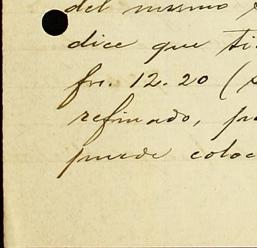 del mismo
dice que
fr. 12.20 (
refinado,
puede coloc